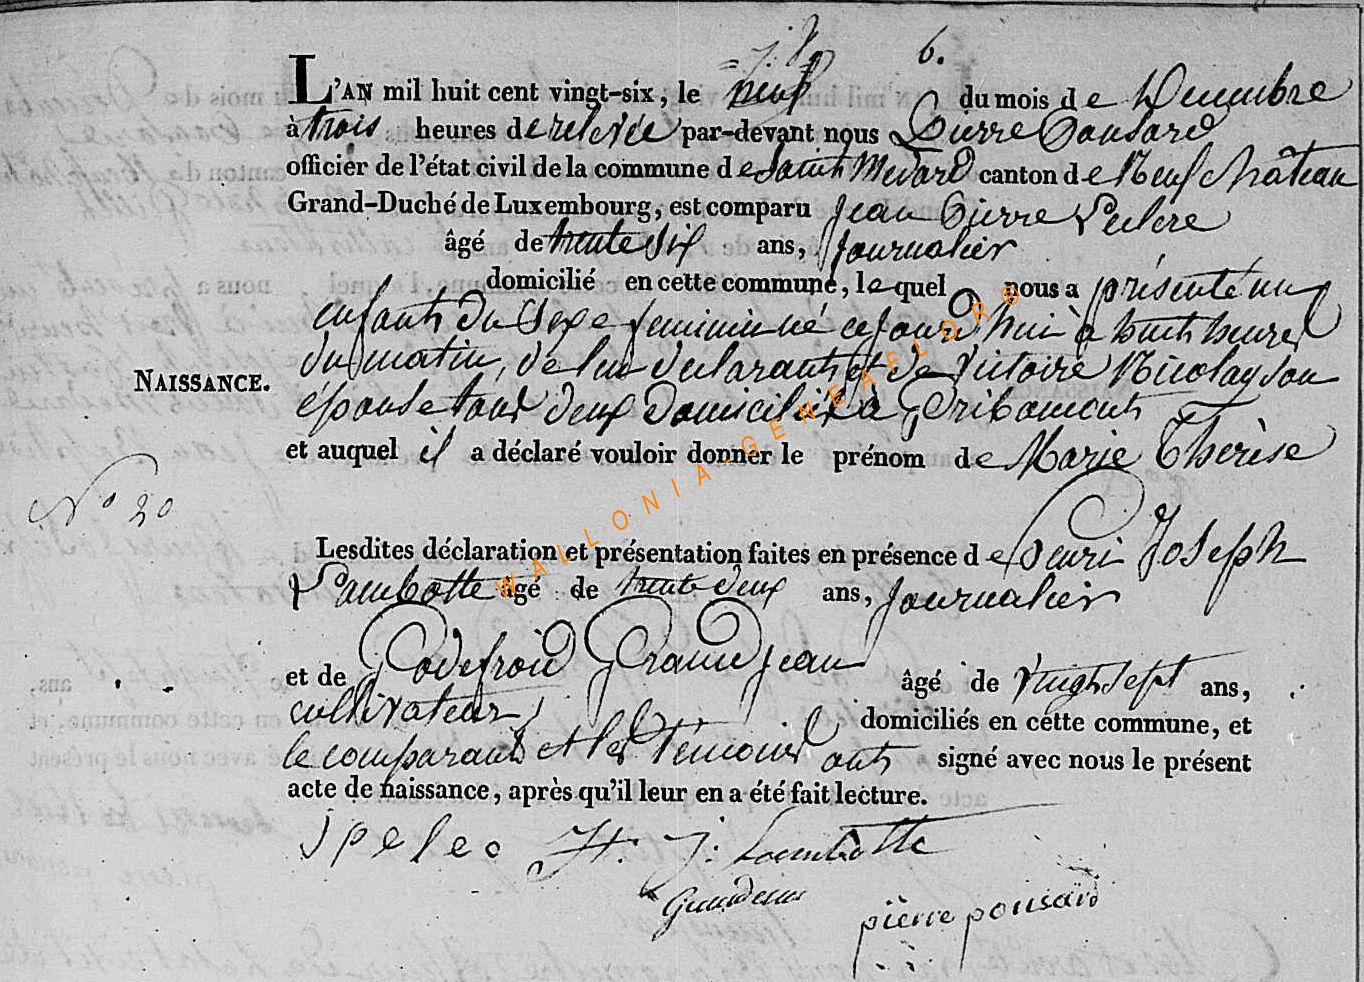 6.
L'AN mil huit cent vingt-six, le neuf du mois de Decembre
à trois heures de relevée par-devant nous Pierre Ponsard
officier de l'état civil de la commune de Saint Médard canton de Neufchâteau
Grand-Duché de Luxembourg, est comparu Jean Pierre Leclere
âgé de trente six ans, Journalier
domicilié en cette commune, lequel nous a présenté un
enfant du Sexe feminin né cejourd'hui à huit heures
du matin, de lui declarant et de Victoire Nicolay son
épouse tous deux domiciliés à Gribomont
NAISSANCE.
et auquel il a déclaré vouloir donner le prénom de Marie Thérèse
N° 20
Lesdites déclaration et présentation faites en présence de Henri Joseph
Lambotte âgé de trente deux ans, Journalier
et de Godefroid Grandjean âgé de vingt sept ans,
cultivateur, domiciliés en cette commune, et
le comparant et les témoins ont signé avec nous le présent
acte de naissance, après qu'il leur en a été fait lecture.
jpelec H: J: Lambotte
Grandjean
pierre ponsard
WALLONIA-GENEAFLOR®